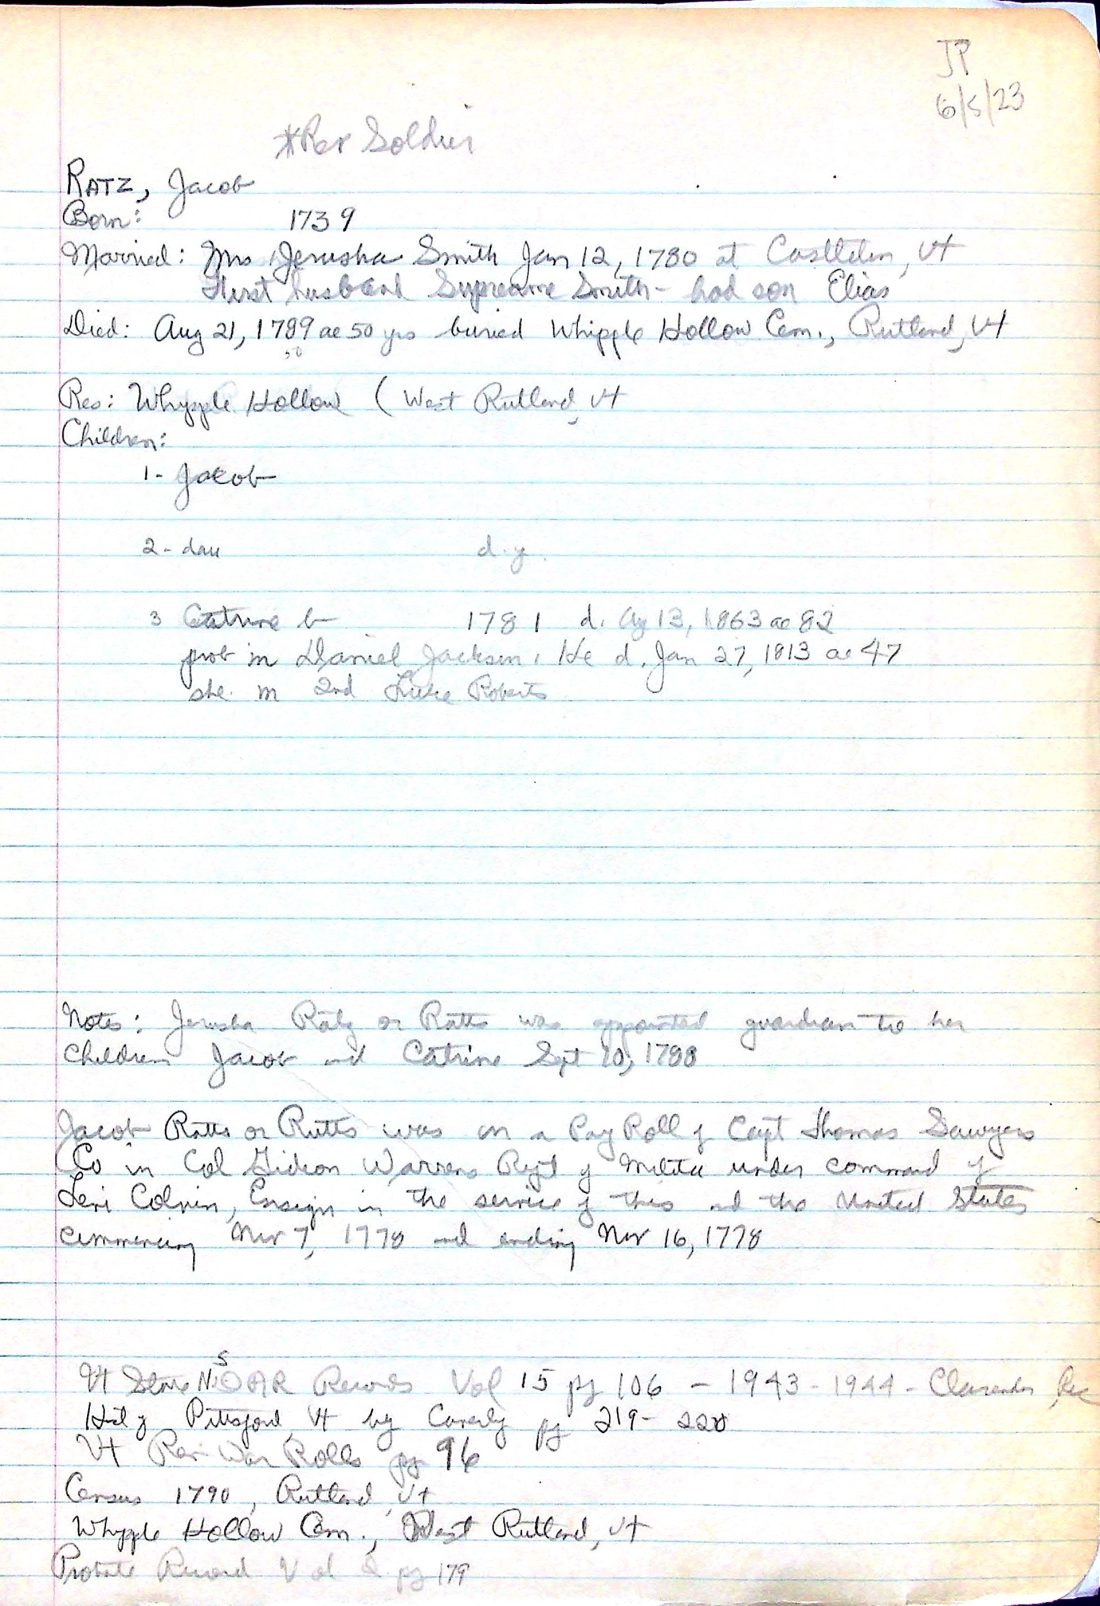 JP
6/5/23
*Rev Soldier
RATZ, Jacob
Born: 1739
Married: Mrs Jerusha Smith Jan 12, 1780 at Castleton, Vt
First husband Supreame Smith - had son Elias
Died: Aug 21, 1789 ae 50 yrs buried Whipple Hollow Cem., Rutland, Vt
50
Res: Whypple Hollow ( West Rutland, Vt
Children:
1- Jacob
2- dau d.y.
3 Catrine b 1781 d. Ag 13, 1863 ae 82
prob m Daniel Jackson, He d. Jan 27, 1813 ae 47
she m 2nd Luke Roberts
Notes: Jerusha Ratz or Ratts was appointed guardian to her
children Jacob and Catrine Sept 10, 1788
Jacob Ratts or Rutts was on a Pay Roll of Capt Thomas Sawyers
Co in Col Gideon Warrens Regt of Militia under command of
Levi Colvin, Ensign in the service of this and the United States
commencing Nov 7, 1778 and ending Nov 16, 1778
Vt State NSDAR Records Vol 15 pg 106 - 1943-1944 - Clarendon, Rec
Hist of Pittsford, Vt by Caverly pg 219-220
Vt Rev War Rolls pg 96
Census 1790, Rutland, Vt
Whypple Hollow Cem., West Rutland, Vt
Probate Record Vol pg 179